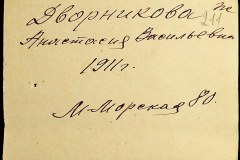 Дворникова
211
Анастасия Васильевна
1911 г.
М-Морская 80.